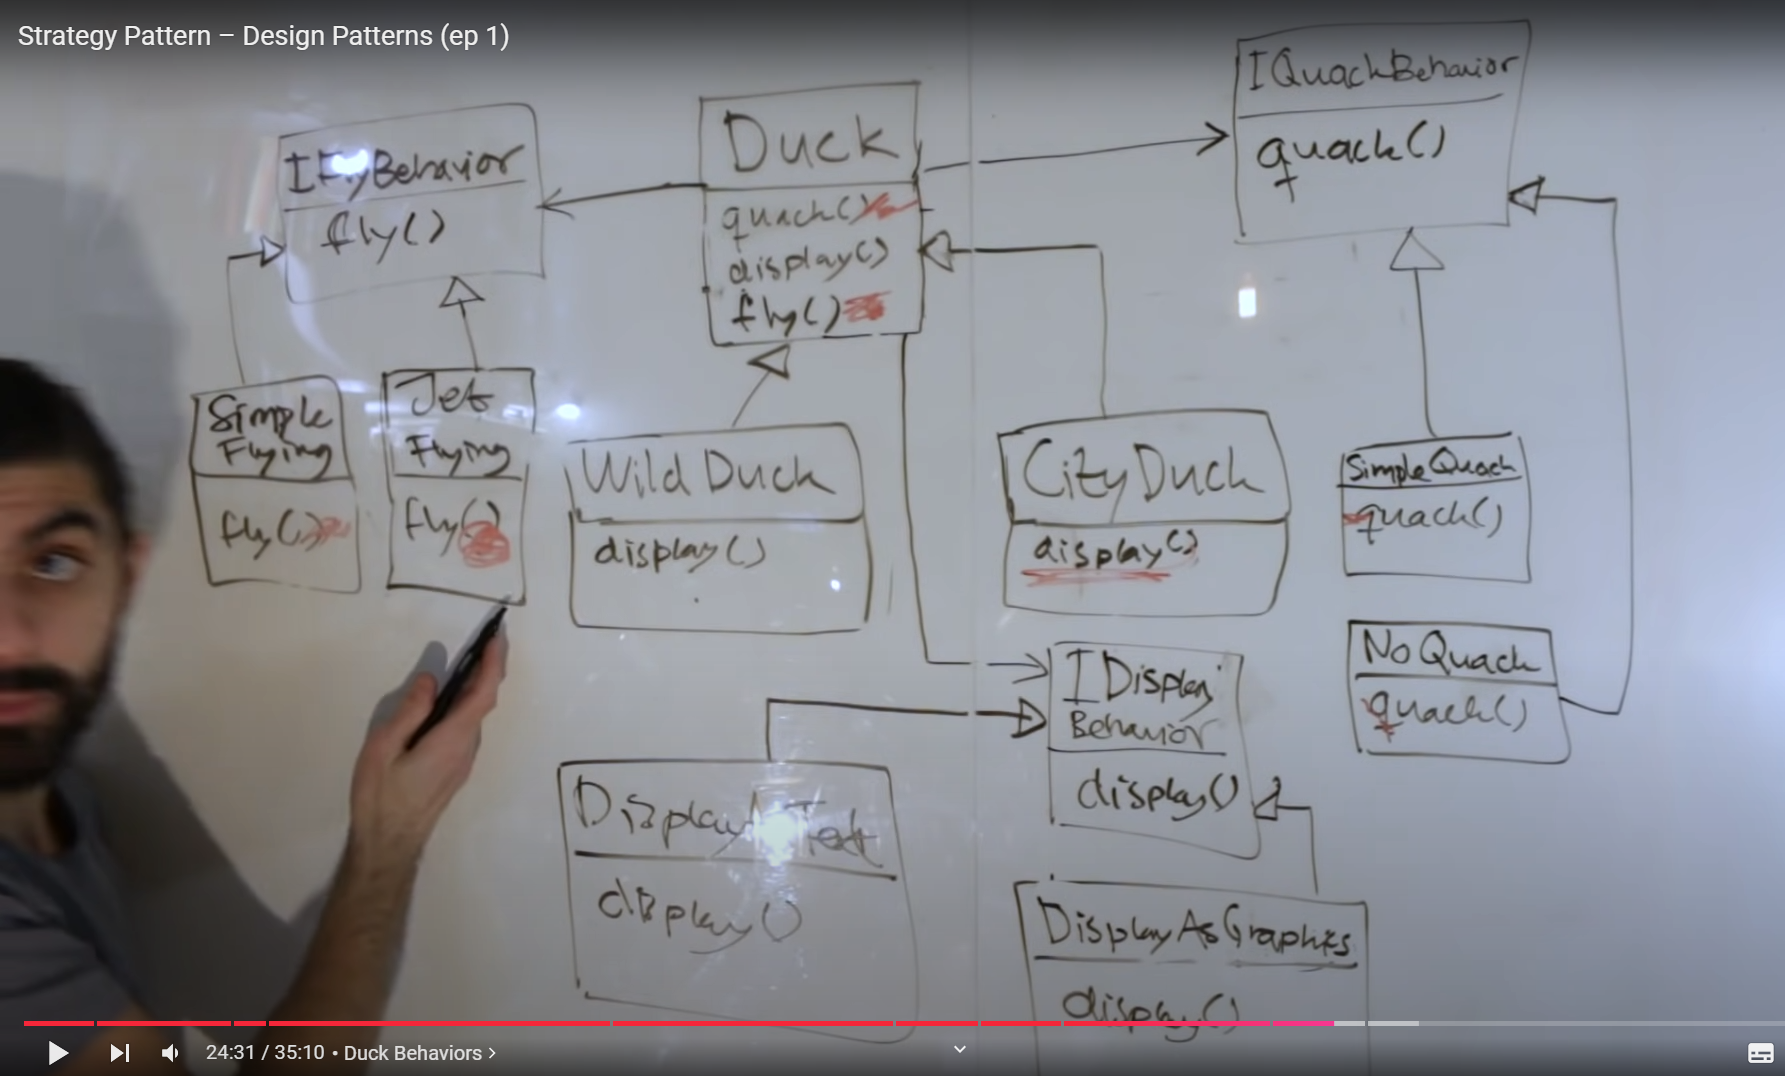 Strategy Pattern – Design Patterns (ep 1)
IFlyBehavior
fly()
Duck
quack()
display()
fly()
IQuackBehavior
quack()
Simple
Flying
fly()
Jet
Flying
fly()
Wild Duck
display()
City Duck
display()
SimpleQuack
quack()
No Quack
quack()
IDisplay
Behavior
display()
DisplayAsText
display()
DisplayAsGraphics
display()
24:31 / 35:10 • Duck Behaviors >